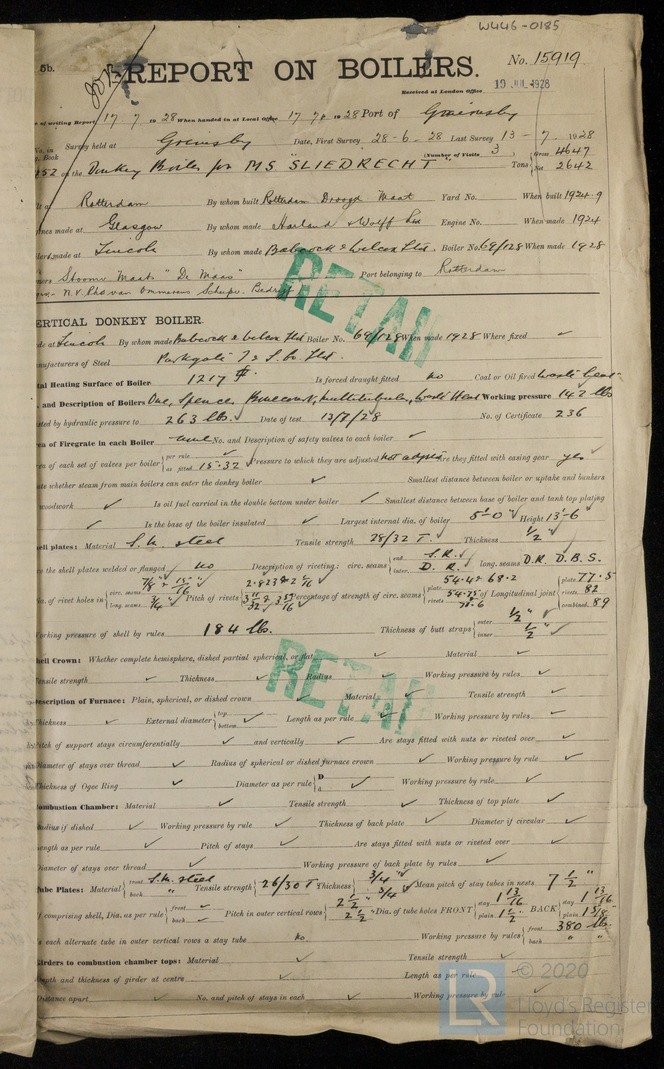 W446-0185
5b.
REPORT ON BOILERS.
No. 15919
Received at London Office
19 JUL 1928
of writing Report 17 7 1928 When handed in at Local Office 17 7 1928 Port of Grimsby
No. in Survey held at Grimsby Date, First Survey 28-6-28 Last Survey 13-7-1928
Book
on the Donkey Boiler for MS "SLIEDRECHT" (Number of Visits 3) Tons Gross 4647 Net 2642
at Rotterdam By whom built Rotterdam Droogd. Maat Yard No. When built 1924.9
made at Glasgow By whom made Harland & Wolff Ltd Engine No. When made 1924
made at Lincoln By whom made Babcock & Wilcox Ltd. Boiler No. 69/128 When made 1928
Stoomv. Maats "De Maas" Port belonging to Rotterdam
N.V. Phs van Ommerens Scheepv. Bedrijf
RETAIN
VERTICAL DONKEY BOILER.
at Lincoln By whom made Babcock & Wilcox Ltd Boiler No. 69/128 When made 1928 Where fixed ✓
Manufacturers of Steel Parkgate I & S. Co. Ltd.
Total Heating Surface of Boiler 1217 Is forced draught fitted no Coal or Oil fired Waste heat
and Description of Boilers One, Spencer Bonecourt, multitubular, Waste Heat Working pressure 142 lbs
tested by hydraulic pressure to 263 lbs. Date of test 13/7/28 No. of Certificate 236
Area of Firegrate in each Boiler none No. and Description of safety valves to each boiler ✓
Area of each set of valves per boiler per rule ✓ as fitted 15.32 Pressure to which they are adjusted not adjusted Are they fitted with easing gear yes
whether steam from main boilers can enter the donkey boiler ✓ Smallest distance between boiler or uptake and bunkers
woodwork ✓ Is oil fuel carried in the double bottom under boiler ✓ Smallest distance between base of boiler and tank top plating
✓ Is the base of the boiler insulated ✓ Largest internal dia. of boiler 5'-0" Height 13'-6"
Shell plates: Material S.M. steel Tensile strength 28/32 T. Thickness 1/2"
Are the shell plates welded or flanged no Description of riveting: circ. seams end S.R. inter. D.R. long. seams D.R. D.B.S.
Dia. of rivet holes in circ. seams 7/8" 15/16" long. seams 3/4" Pitch of rivets Percentage of strength of circ. seams plate 54.4 & 68.2 rivets 54.75 of Longitudinal joint plate 77.5 rivets 82 combined 89
Working pressure of shell by rules 184 lb. Thickness of butt straps outer 1/2" inner 1/2"
RETAIN
Shell Crown: Whether complete hemisphere, dished partial spherical, or flat ✓ Material ✓
Tensile strength ✓ Thickness ✓ Radius ✓ Working pressure by rules ✓
Description of Furnace: Plain, spherical, or dished crown ✓ Material ✓ Tensile strength ✓
Thickness ✓ External diameter top bottom ✓ Length as per rule ✓ Working pressure by rules ✓
Pitch of support stays circumferentially ✓ and vertically ✓ Are stays fitted with nuts or riveted over ✓
Diameter of stays over thread ✓ Radius of spherical or dished furnace crown ✓ Working pressure by rule ✓
Thickness of Ogee Ring ✓ Diameter as per rule D d ✓ Working pressure by rule ✓
Combustion Chamber: Material ✓ Tensile strength ✓ Thickness of top plate ✓
Radius if dished ✓ Working pressure by rule ✓ Thickness of back plate ✓ Diameter if circular ✓
Length as per rule ✓ Pitch of stays ✓ Are stays fitted with nuts or riveted over ✓
Diameter of stays over thread ✓ Working pressure of back plate by rules ✓
Tube Plates: Material front S.M. steel back " Tensile strength 26/30 T Thickness 3/4" 3/4" Mean pitch of stay tubes in nests 7 1/2"
If comprising shell, Dia. as per rule front ✓ back ✓ Pitch in outer vertical rows 2 1/2" 2 1/2" Dia. of tube holes FRONT stay 1 13/16 plain 1 1/2" BACK stay 1 13/16 plain 1 5/8"
Is each alternate tube in outer vertical rows a stay tube no Working pressure by rules front 380 lb. back " "
Girders to combustion chamber tops: Material ✓ Tensile strength ✓
Depth and thickness of girder at centre ✓ Length as per rule ✓
Distance apart ✓ No. and pitch of stays in each ✓ Working pressure by rule ✓
LR
© 2020
Lloyd's Register
Foundation